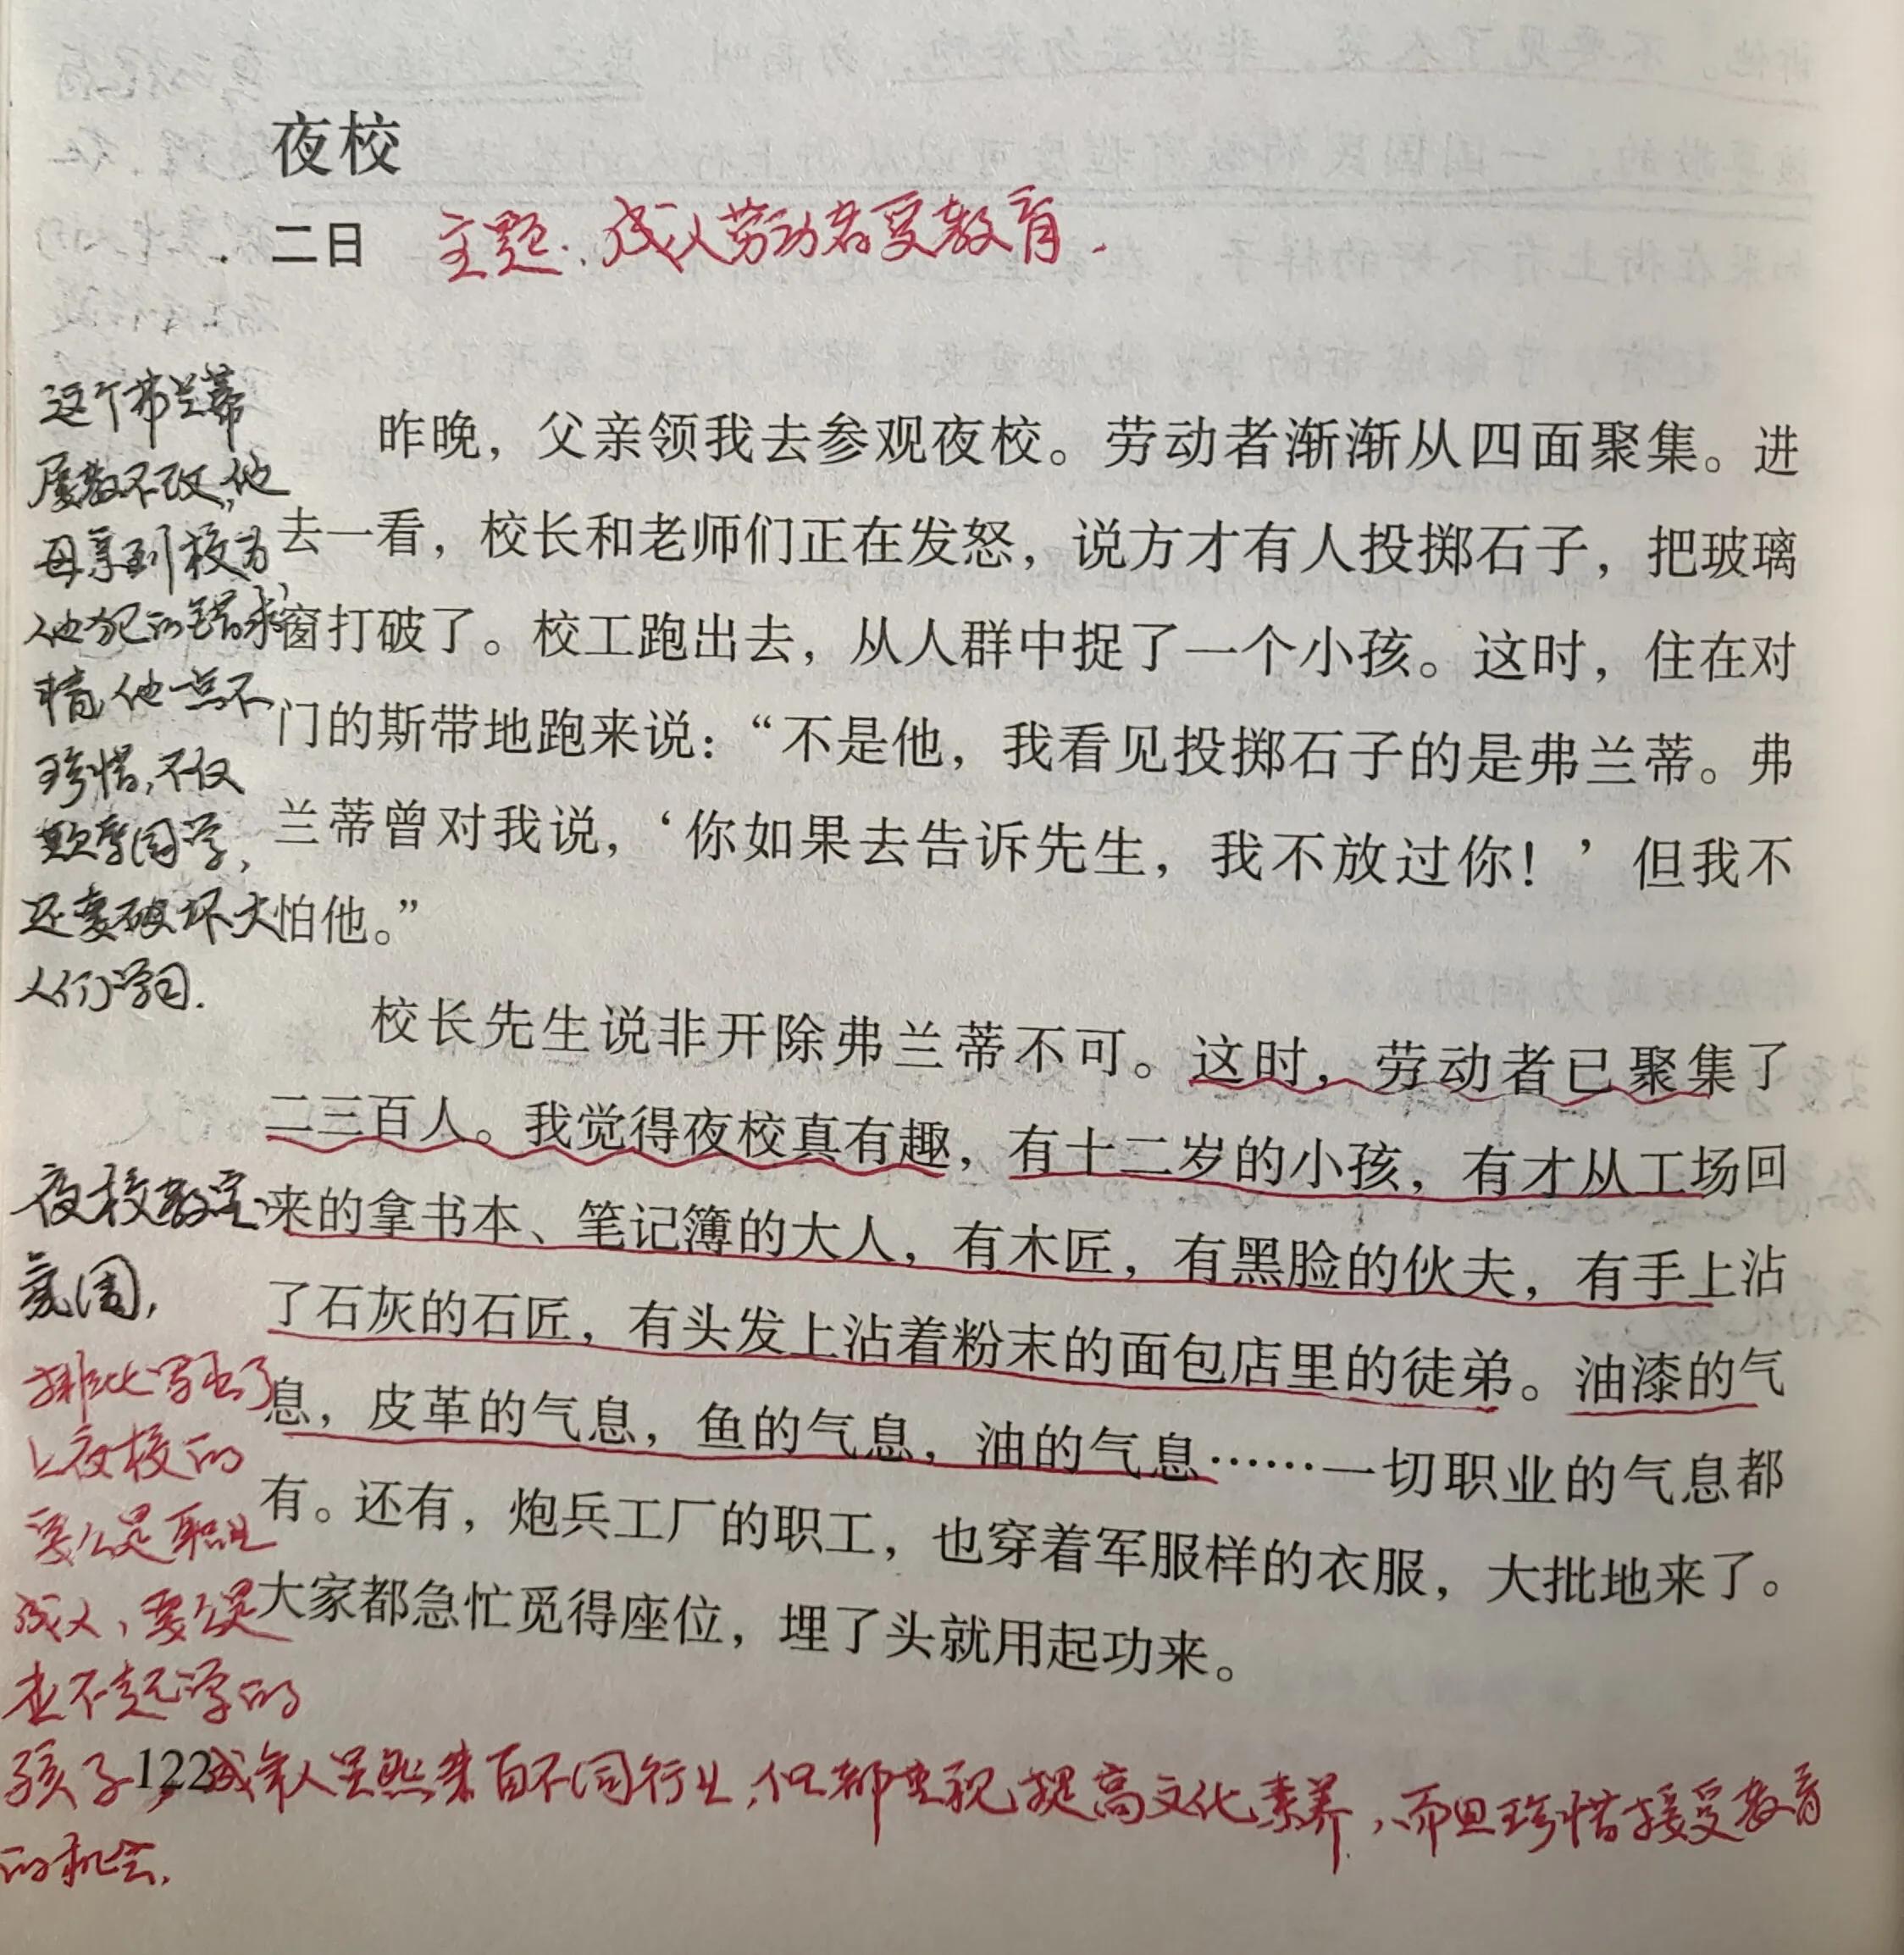 夜校
二日 主题:成人劳动者受教育.
这个弗兰蒂
屡教不改,他
母亲到校为
他犯的错求
情,他一点不
珍惜,不仅
欺辱同学,
还要破坏大
人们学习.
昨晚，父亲领我去参观夜校。劳动者渐渐从四面聚集。进
去一看，校长和老师们正在发怒，说方才有人投掷石子，把玻璃
窗打破了。校工跑出去，从人群中捉了一个小孩。这时，住在对
门的斯带地跑来说：“不是他，我看见投掷石子的是弗兰蒂。弗
兰蒂曾对我说，‘你如果去告诉先生，我不放过你！’但我不
怕他。”
校长先生说非开除弗兰蒂不可。这时，劳动者已聚集了
二三百人。我觉得夜校真有趣，有十二岁的小孩，有才从工场回
来的拿书本、笔记簿的大人，有木匠，有黑脸的伙夫，有手上沾
了石灰的石匠，有头发上沾着粉末的面包店里的徒弟。油漆的气
息，皮革的气息，鱼的气息，油的气息……一切职业的气息都
有。还有，炮兵工厂的职工，也穿着军服样的衣服，大批地来了。
大家都急忙觅得座位，埋了头就用起功来。
夜校教室
氛围,
排比写出了
上夜校的
要么是职业
成人,要么是
上不起学的
孩子,成年人虽然来自不同行业,但都重视提高文化素养,而且珍惜接受教育
的机会.
122